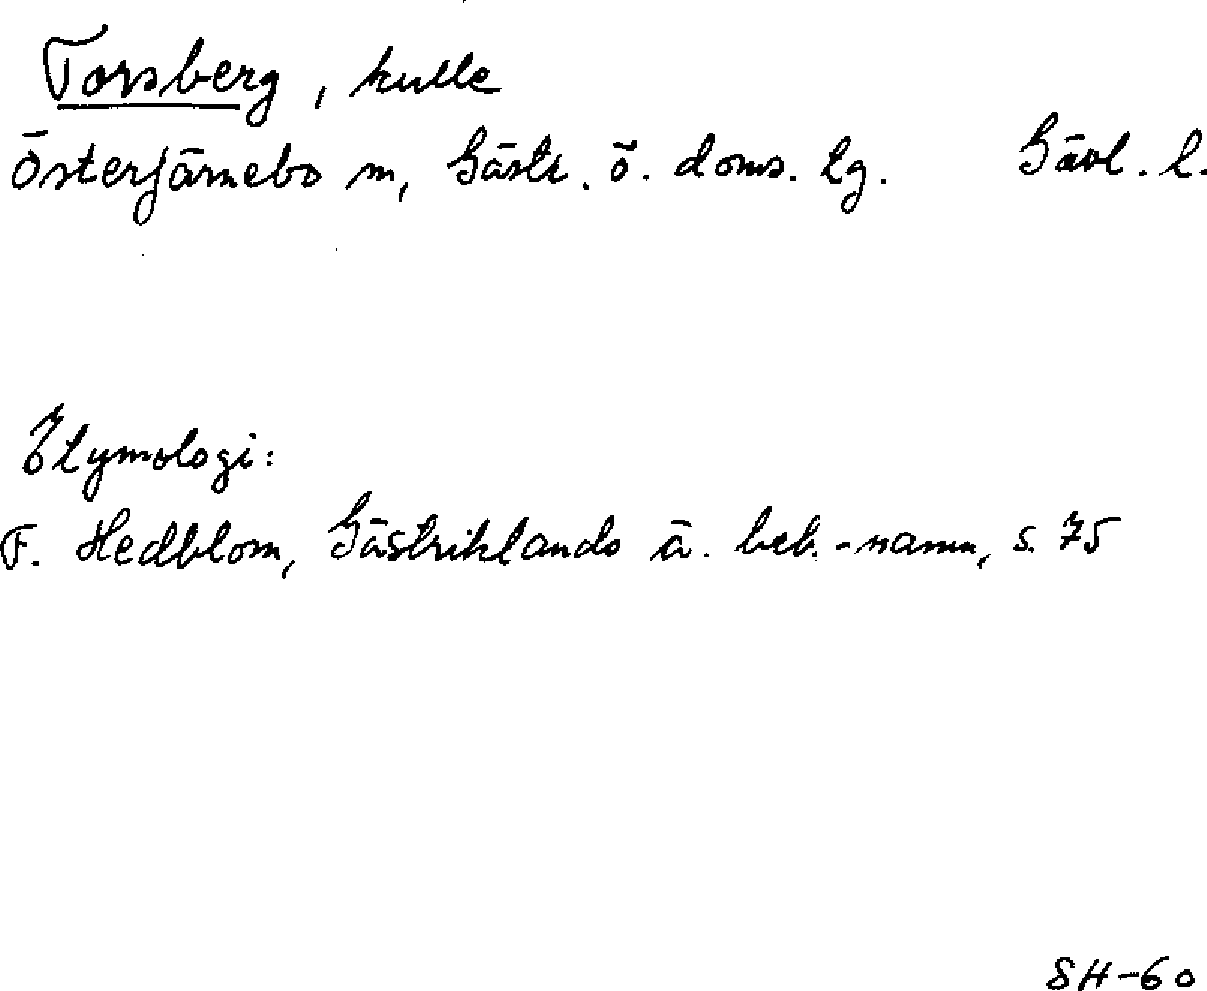 Torsberg, kulle
Österfärnebo sn, Gästr. ö. doms. tg. Gävl. l.
Etymologi:
F. Hedblom, Gästriklands ä. beb.-namn, s. 75
SH-60